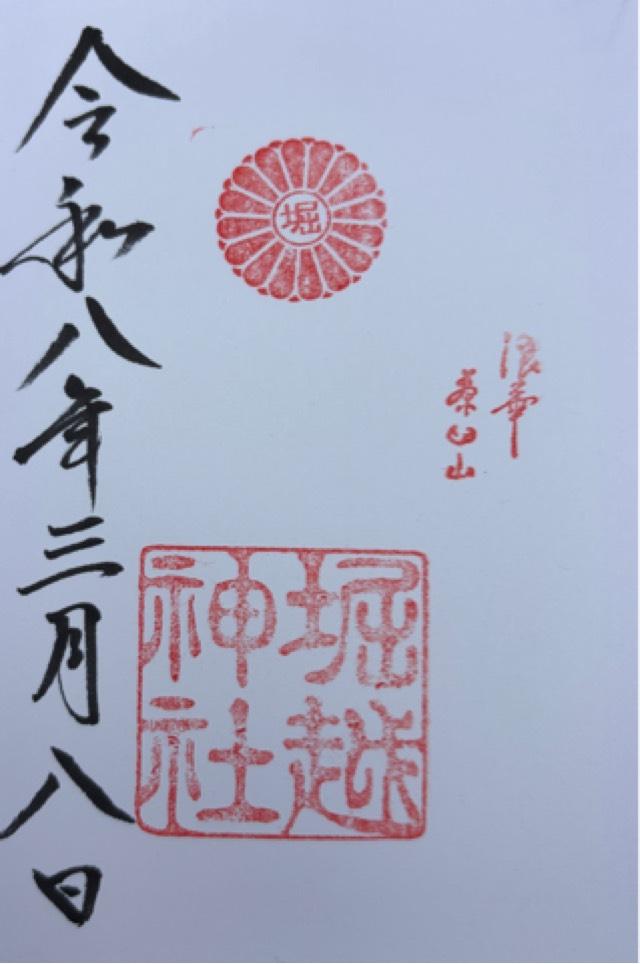 浪華
茶臼山
堀
堀越
神社
令和八年三月八日